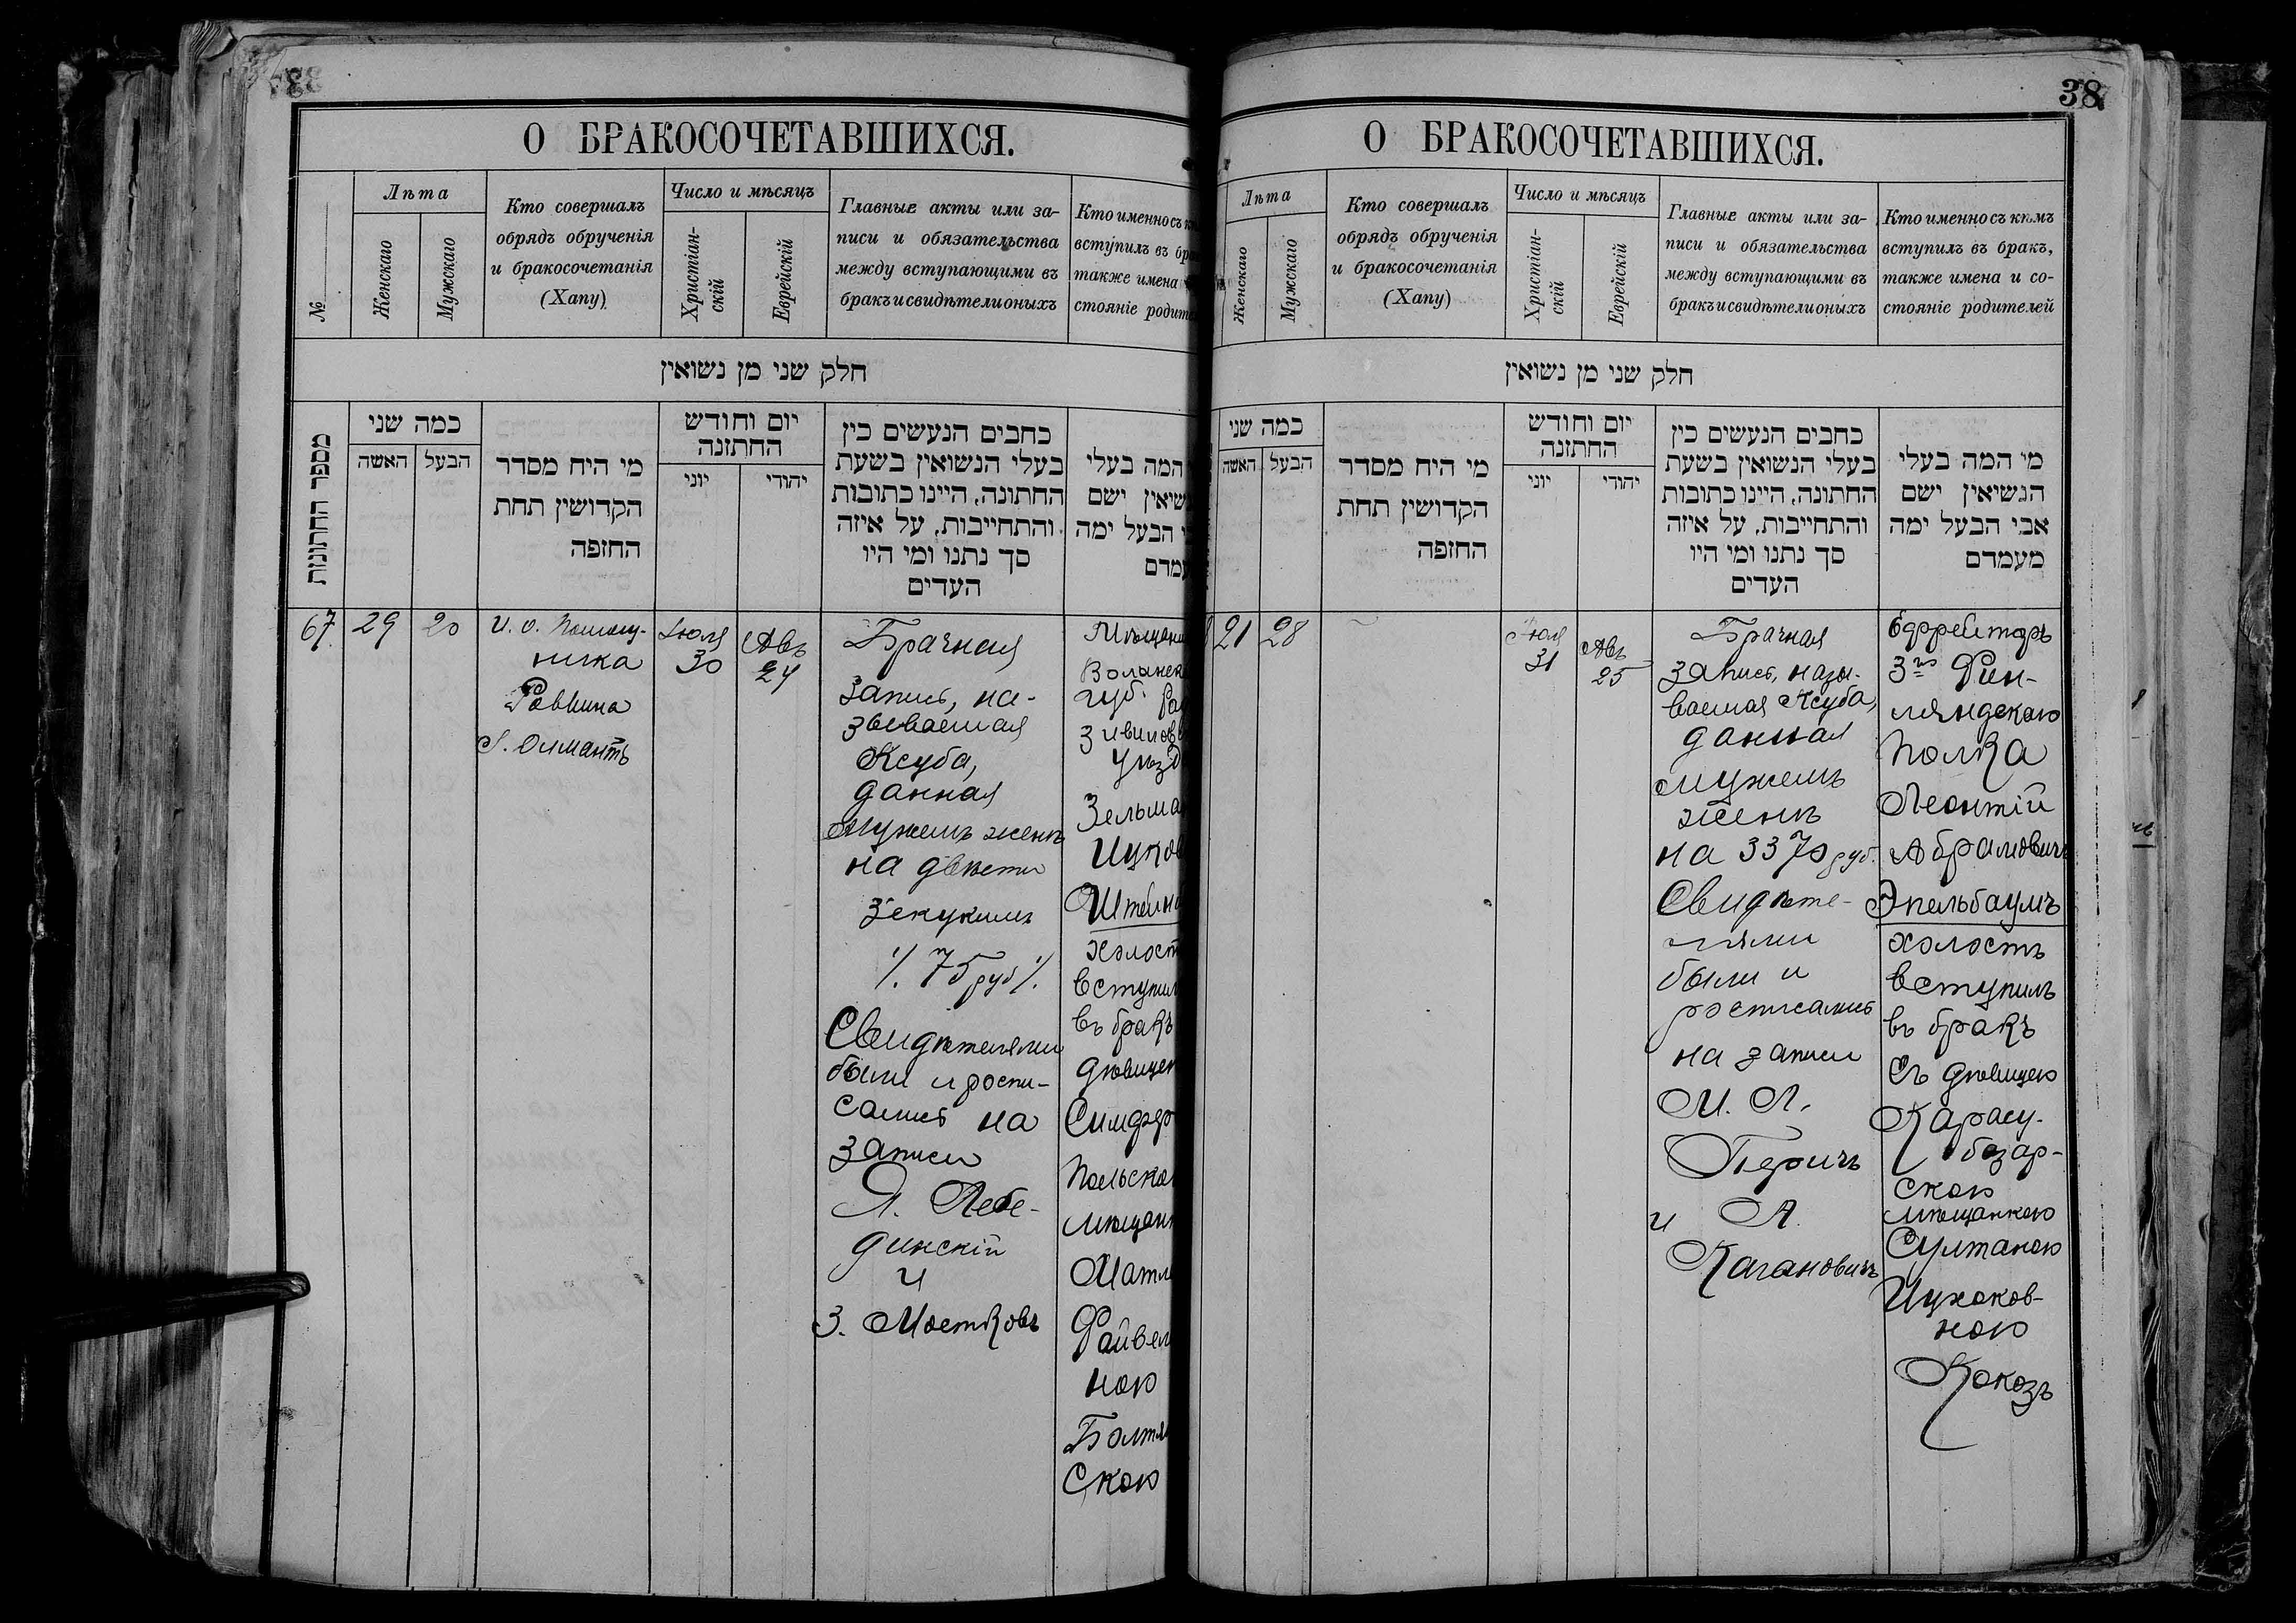 О БРАКОСОЧЕТАВШИХСЯ.
№
Лѣта
Женскаго
Мужскаго
Кто совершалъ
обрядъ обрученія
и бракосочетанія
(Хапу)
Число и мѣсяцъ
Христіан-
скій
Еврейскій
Главные акты или за-
писи и обязательства
между вступающими въ
бракъ и свидѣтели оныхъ
Кто именно съ
вступилъ въ
также имена
стояніе
חלק שני מן נשואין
מספר החתונות
כמה שני
האשה
הבעל
מי היח מסדר
הקדושין תחת
החופה
יום וחודש
החתונה
יוני
יהודי
כתבים הנעשים בין
בעלי הנשואין בשעת
החתונה, היינו כתובות
והתחייבות, על איזה
סך נתנו ומי היו
העדים
המה בעלי
ישם
הבעל ימה
67
29
20
И. о. помощ-
ника
Раввина
Я. Олмантъ
Іюля
30
Авъ
24
Брачная
запись, на-
зываемая
Ксуба,
данная
мужемъ женѣ
на двѣсти
зекукимъ
/. 75 руб /.
Свидѣтелями
были и роспи-
сались на
записи
Я. Лебе-
динскій
и
З. Мостковъ
губ.
въ бракъ
ною
скою
38
О БРАКОСОЧЕТАВШИХСЯ.
Лѣта
Женскаго
Мужскаго
Кто совершалъ
обрядъ обрученія
и бракосочетанія
(Хапу)
Число и мѣсяцъ
Христіан-
скій
Еврейскій
Главные акты или за-
писи и обязательства
между вступающими въ
бракъ и свидѣтели оныхъ
Кто именно съ кѣмъ
вступилъ въ бракъ,
также имена и со-
стояніе родителей
חלק שני מן נשואין
כמה שני
האשה
הבעל
מי היח מסדר
הקדושין תחת
החופה
יום וחודש
החתונה
יוני
יהודי
כתבים הנעשים בין
בעלי הנשואין בשעת
החתונה, היינו כתובות
והתחייבות, על איזה
סך נתנו ומי היו
העדים
מי המה בעלי
הנשיאין ישם
אבי הבעל ימה
מעמדם
21
28
Іюля
31
Авъ
25
Брачная
запись, назы-
ваемая Ксуба,
данная
мужемъ
женѣ
на 3370 руб.
Свидѣте-
лями
были и
росписались
на записи
М. Л.
Перичъ
и А.
Кагановичъ
Ефрейторъ
3го Фин-
ляндскаго
полка
Леонтій
Абрамовичъ
Эпельбаумъ
холостъ
вступилъ
въ бракъ
съ дѣвицею
Карасу-
базар-
скою
мѣщанкою
Султаною
Ицхаков-
ною
Кокозъ